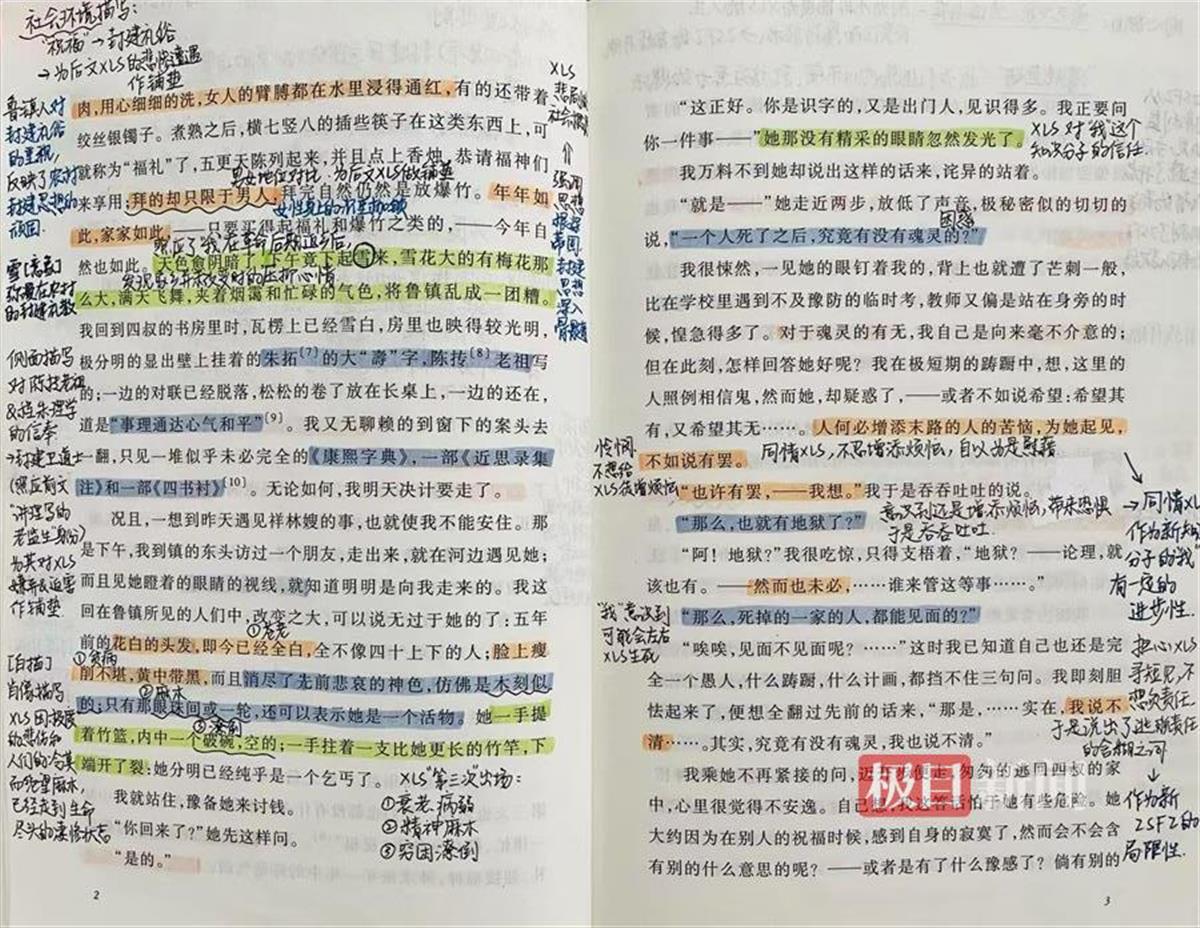 社会环境描写：
“祝福”→封建礼俗
→为后文XLS的悲惨遭遇
作铺垫
鲁镇人对
封建礼俗
的重视，
反映了农村
封建思想的
顽固.
肉，用心细细的洗，女人的臂膊都在水里浸得通红，有的还带着
绞丝银镯子。煮熟之后，横七竖八的插些筷子在这类东西上，可
就称为“福礼”了，五更天陈列起来，并且点上香烛，恭请福神们
男女地位对比，为后文XLS做铺垫
来享用，拜的却只限于男人，拜完自然仍然是放爆竹。年年如
此，家家如此，——只要买得起福礼和爆竹之类的，——今年自
然也如此。天色愈阴暗了，下午竟下起雪来，雪花大的有梅花那
么大，满天飞舞，夹着烟霭和忙碌的气色，将鲁镇乱成一团糟。
我回到四叔的书房里时，瓦楞上已经雪白，房里也映得较光明，
极分明的显出壁上挂着的朱拓[7]的大“壽”字，陈抟[8]老祖写
的；一边的对联已经脱落，松松的卷了放在长桌上，一边的还在，
道是“事理通达心气和平”[9]。我又无聊赖的到窗下的案头去
一翻，只见一堆似乎未必完全的《康熙字典》，一部《近思录集
注》和一部《四书衬》[10]。无论如何，我明天决计要走了。
况且，一想到昨天遇见祥林嫂的事，也就使我不能安住。那
是下午，我到镇的东头访过一个朋友，走出来，就在河边遇见她；
而且见她瞪着的眼睛的视线，就知道明明是向我走来的。我这
回在鲁镇所见的人们中，改变之大，可以说无过于她的了：五年
①苍老
前的花白的头发，即今已经全白，全不像四十上下的人；脸上瘦
①贫病
削不堪，黄中带黑，而且消尽了先前悲哀的神色，仿佛是木刻似
②麻木
的；只有那眼珠间或一轮，还可以表示她是一个活物。她一手提
③潦倒
着竹篮，内中一个破碗，空的；一手拄着一支比她更长的竹竿，下
端开了裂：她分明已经纯乎是一个乞丐了。
我就站住，豫备她来讨钱。
“你回来了？”她先这样问。
“是的。”
XLS“第三次”出场：
①衰老、病弱
②精神麻木
③穷困潦倒
雪[意象]
的封建礼教
侧面描写
对陈抟老祖
&程朱理学
的信奉
→封建卫道士
(照应前文
“讲理学的
老监生”身份)
为其对XLS
作铺垫
[白描]
肖像描写
XLS因极度
的悲伤和
人们的冷漠
而绝望麻木，
已经走到生命
尽头的凄惨状态
2
“这正好。你是识字的，又是出门人，见识得多。我正要问
你一件事——”她那没有精采的眼睛忽然发光了。
XLS对“我”这个
知识分子的信任.
我万料不到她却说出这样的话来，诧异的站着。
“就是——”她走近两步，放低了声音，极秘密似的切切的
困惑
说，“一个人死了之后，究竟有没有魂灵的？”
我很悚然，一见她的眼钉着我的，背上也就遭了芒刺一般，
比在学校里遇到不及豫防的临时考，教师又偏是站在身旁的时
候，惶急得多了。对于魂灵的有无，我自己是向来毫不介意的；
但在此刻，怎样回答她好呢？我在极短期的踌蹰中，想，这里的
人照例相信鬼，然而她，却疑惑了，——或者不如说希望：希望其
有，又希望其无……。人何必增添末路的人的苦恼，为她起见，
不如说有罢。
同情XLS，不忍增添烦恼，自以为是慰藉
怜悯
不想给
XLS徒增烦恼
“也许有罢，——我想。”我于是吞吞吐吐的说。
“那么，也就有地狱了？”
意识到还是增添烦恼，带来恐惧
于是吞吞吐吐.
“阿！地狱？”我很吃惊，只得支梧着，“地狱？——论理，就
该也有。——然而也未必，……谁来管这等事……。”
“那么，死掉的一家的人，都能见面的？”
“我”意识到
可能会左右
XLS生死
“唉唉，见面不见面呢？……”这时我已知道自己也还是完
全一个愚人，什么踌蹰，什么计画，都挡不住三句问。我即刻胆
怯起来了，便想全翻过先前的话来，“那是，……实在，我说不
清……。其实，究竟有没有魂灵，我也说不清。”
我乘她不再紧接的问，迈开步便走，匆匆的逃回四叔的家
中，心里很觉得不安逸。自己想，我这答话怕于她有些危险。她
大约因为在别人的祝福时候，感到自身的寂寞了，然而会不会含
有别的什么意思的呢？——或者是有了什么豫感了？倘有别的
→同情XLS
作为新知识
分子的“我”
有一定的
进步性.
担心XLS
寻短见，不
想负责任，
于是说出了逃避责任
的含糊之词
作为新
ZSFZ的
局限性.
3
极目新闻